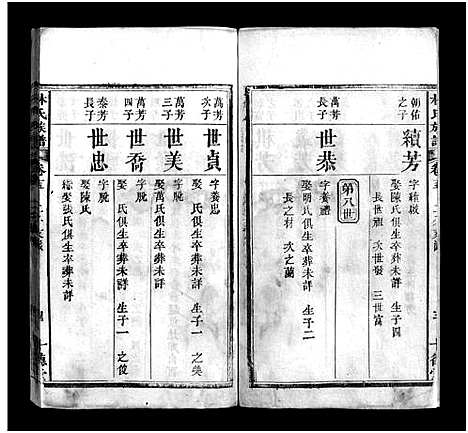 林氏族譜
卷
朝佑
之子
續芳
娶陳氏俱生卒葬未詳 生子四
長世祖 次世發 三世富
第八世
萬芳
長子
世恭
字養體
娶明氏俱生卒葬未詳 生子二
長之材 次之蘭
萬芳
次子
世貞
字養忠
娶 氏俱生卒葬未詳 生子一 之美
萬芳
三子
世美
字脫
娶萬氏俱生卒葬未詳
萬芳
四子
世喬
字脫
娶 氏俱生卒葬未詳 生子一 之俊
秦芳
長子
世忠
娶陳氏
繼娶張氏俱生卒葬未詳
林氏族譜
卷